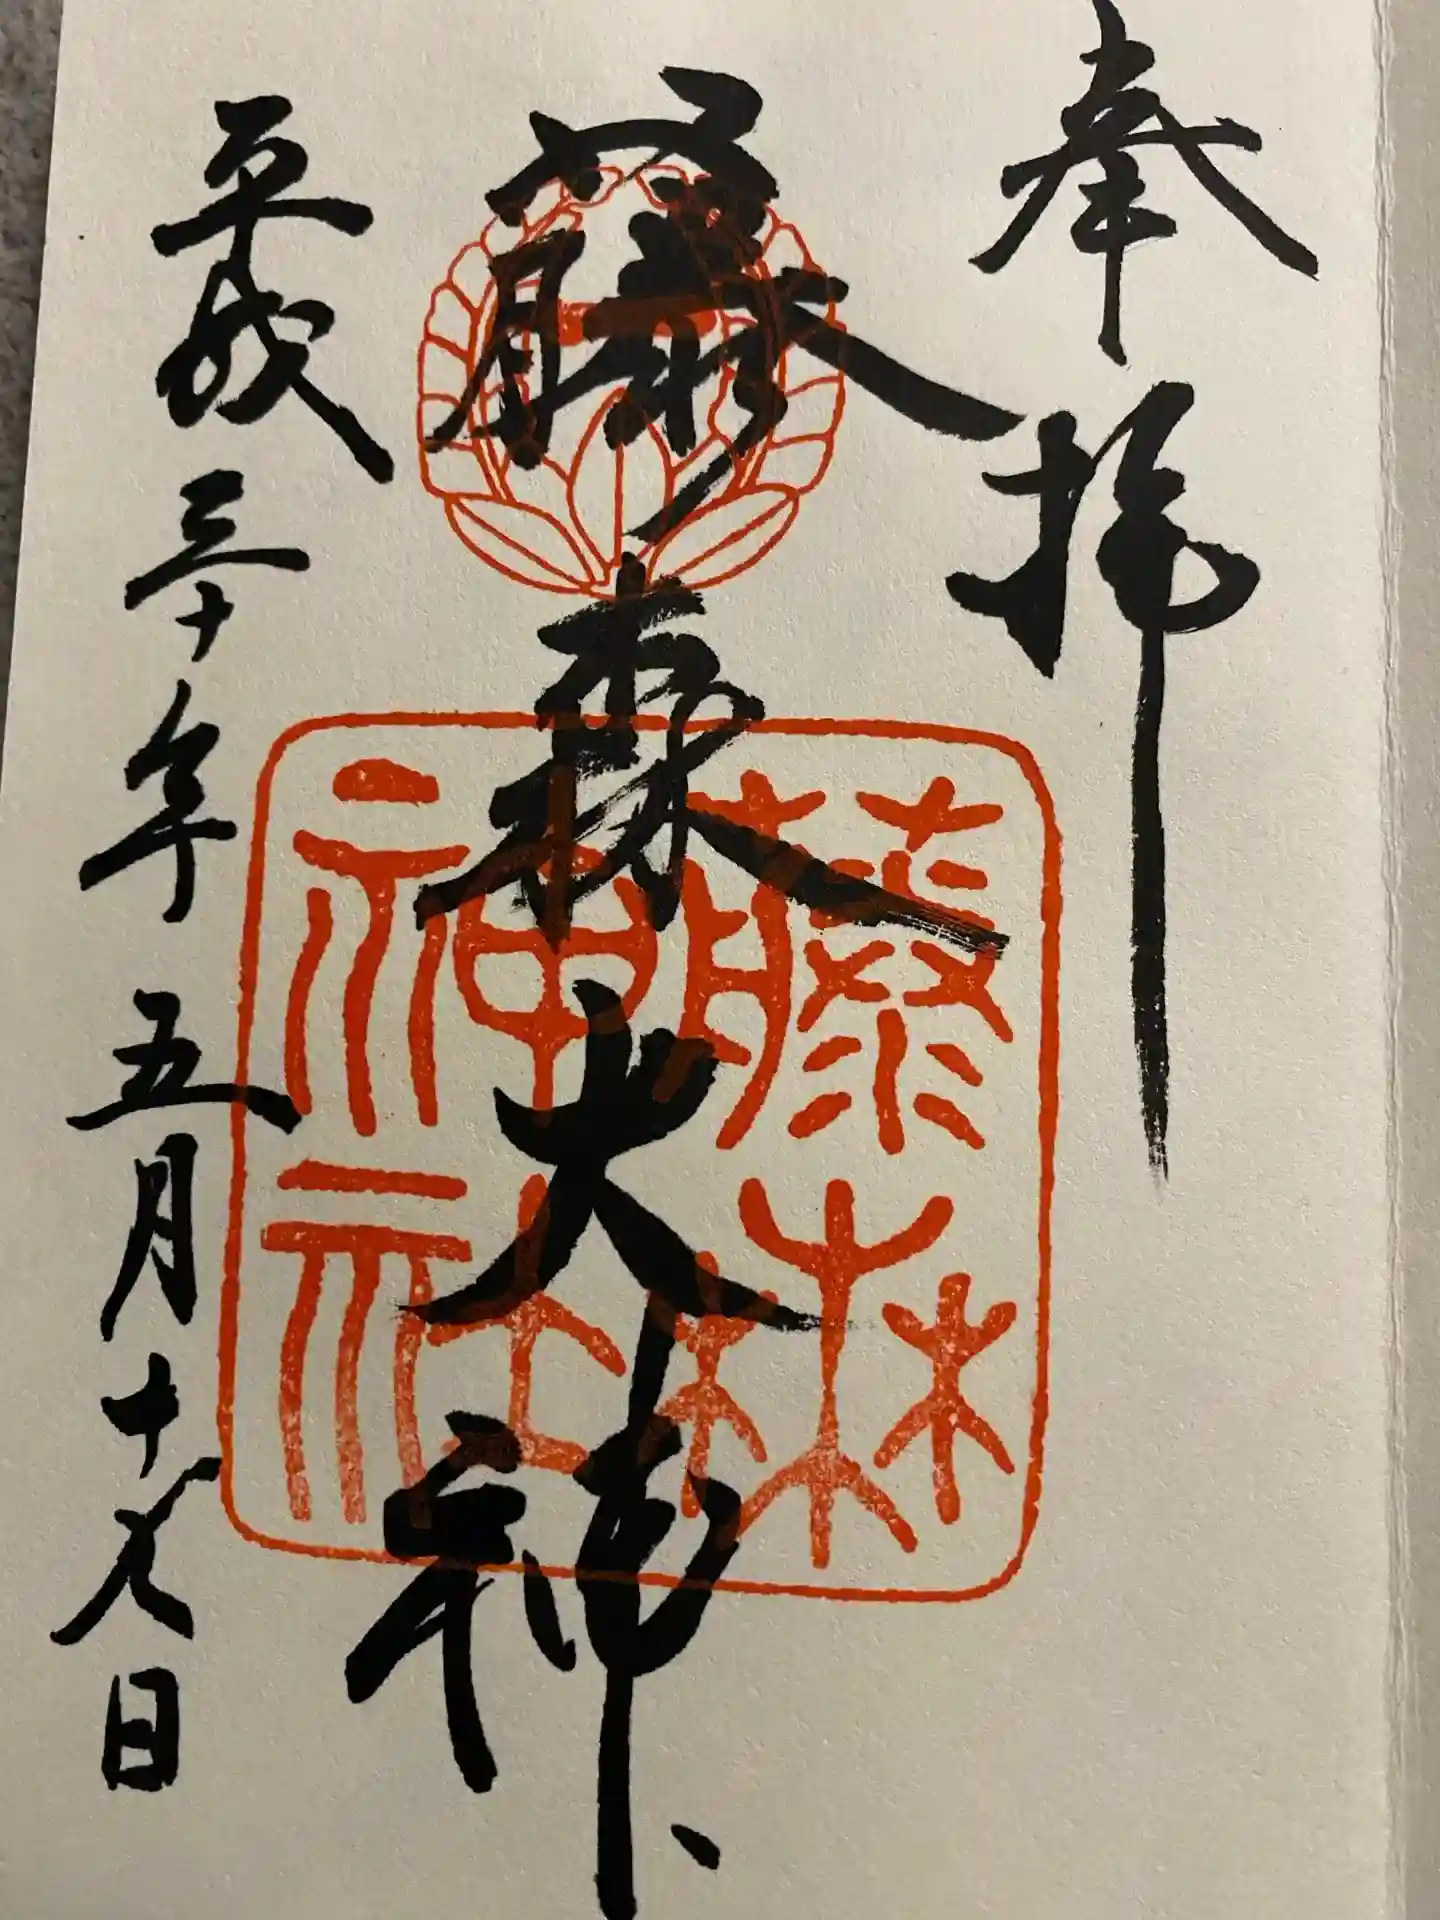 奉拝
藤森大神
藤森
神社
平成三十年五月十六日